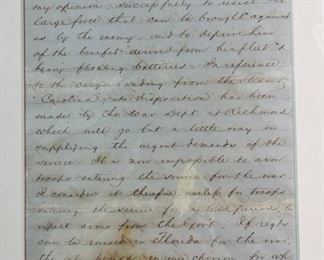 my opinion, successfully to resist the
large force that can be brought against
us by the enemy, and to deprive them
of the benefit derived from his fleet &
heavy floating batteries. In reference
to the cargo landing from the steamer
"Carolina", its disposition has been
made by the War Dept at Richmond,
which will go but a little way in
supplying the urgent demands of the
service. It is now impossible to arm
troops entering the service for the war.
I consider it therefore useless for troops
entering the service for a less period to
expect arms from the Govt. If regts
can be raised in Florida for the war,
the